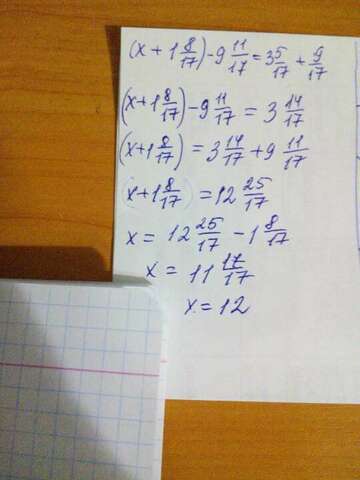 (x + 1 8/17) - 9 11/17 = 3 5/17 + 9/17
(x + 1 8/17) - 9 11/17 = 3 14/17
(x + 1 8/17) = 3 14/17 + 9 11/17
(x + 1 8/17) = 12 25/17
x = 12 25/17 - 1 8/17
x = 11 17/17
x = 12